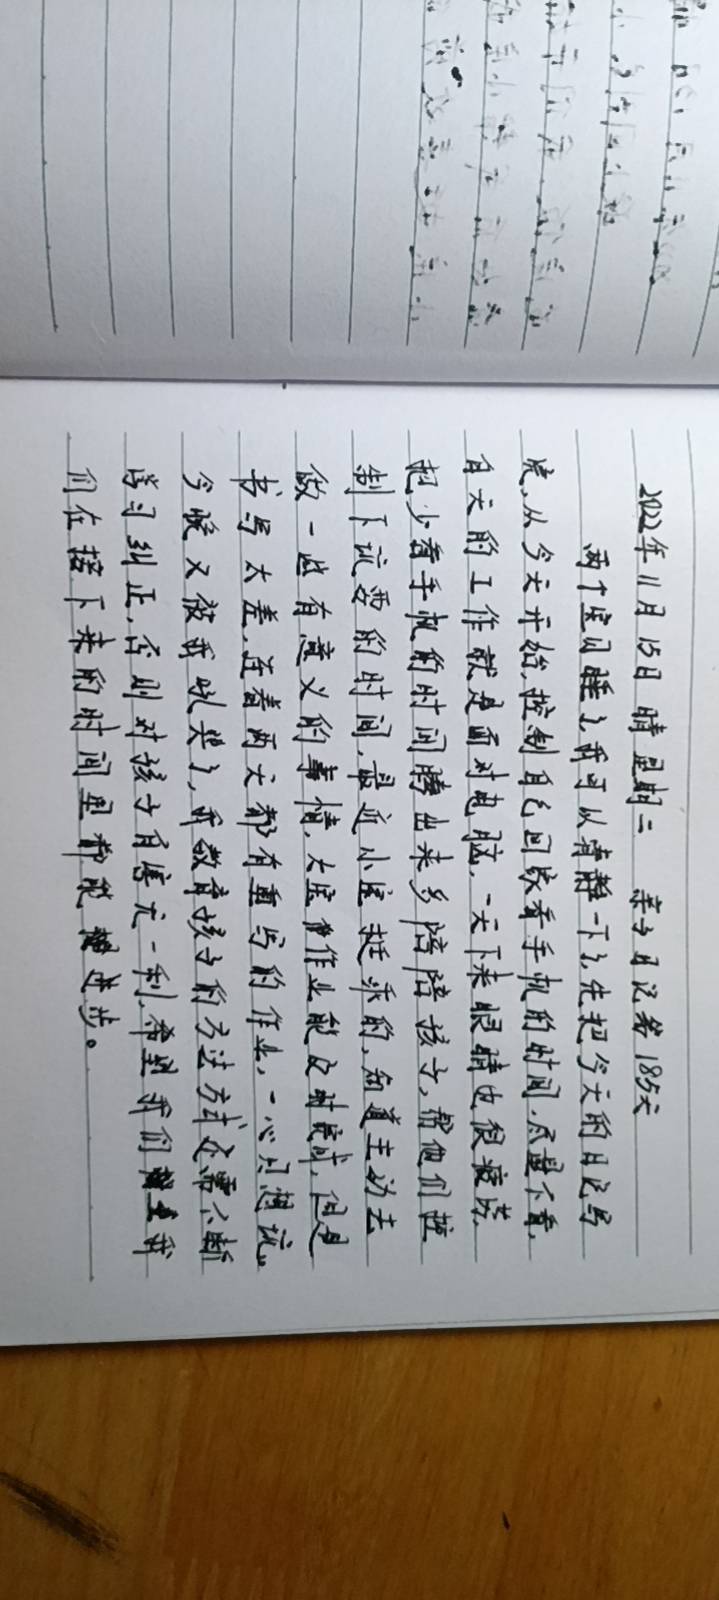 2022年11月15日 晴 星期二 亲子日记第185天
两个宝贝睡了,我可以清静一下了,先把今天的日记写
完,从今天开始,控制自己回家看手机的时间,尽量不看,
白天的工作就是面对电脑,一天下来眼睛也很疲劳,
把少看手机的时间腾出来多陪陪孩子,帮他们控
制下玩耍的时间,最近小宝挺乖的,知道主动去
做一些有意义的事情,大宝作业能及时完成,但是
书写太差,连着两天都有重写的作业,一心只想玩。
今晚又被我吼哭了,我教育孩子的方法方式还需不断
学习纠正,否则对孩子有害无一利,希望我们 我
们在接下来的时间里都能 进步。